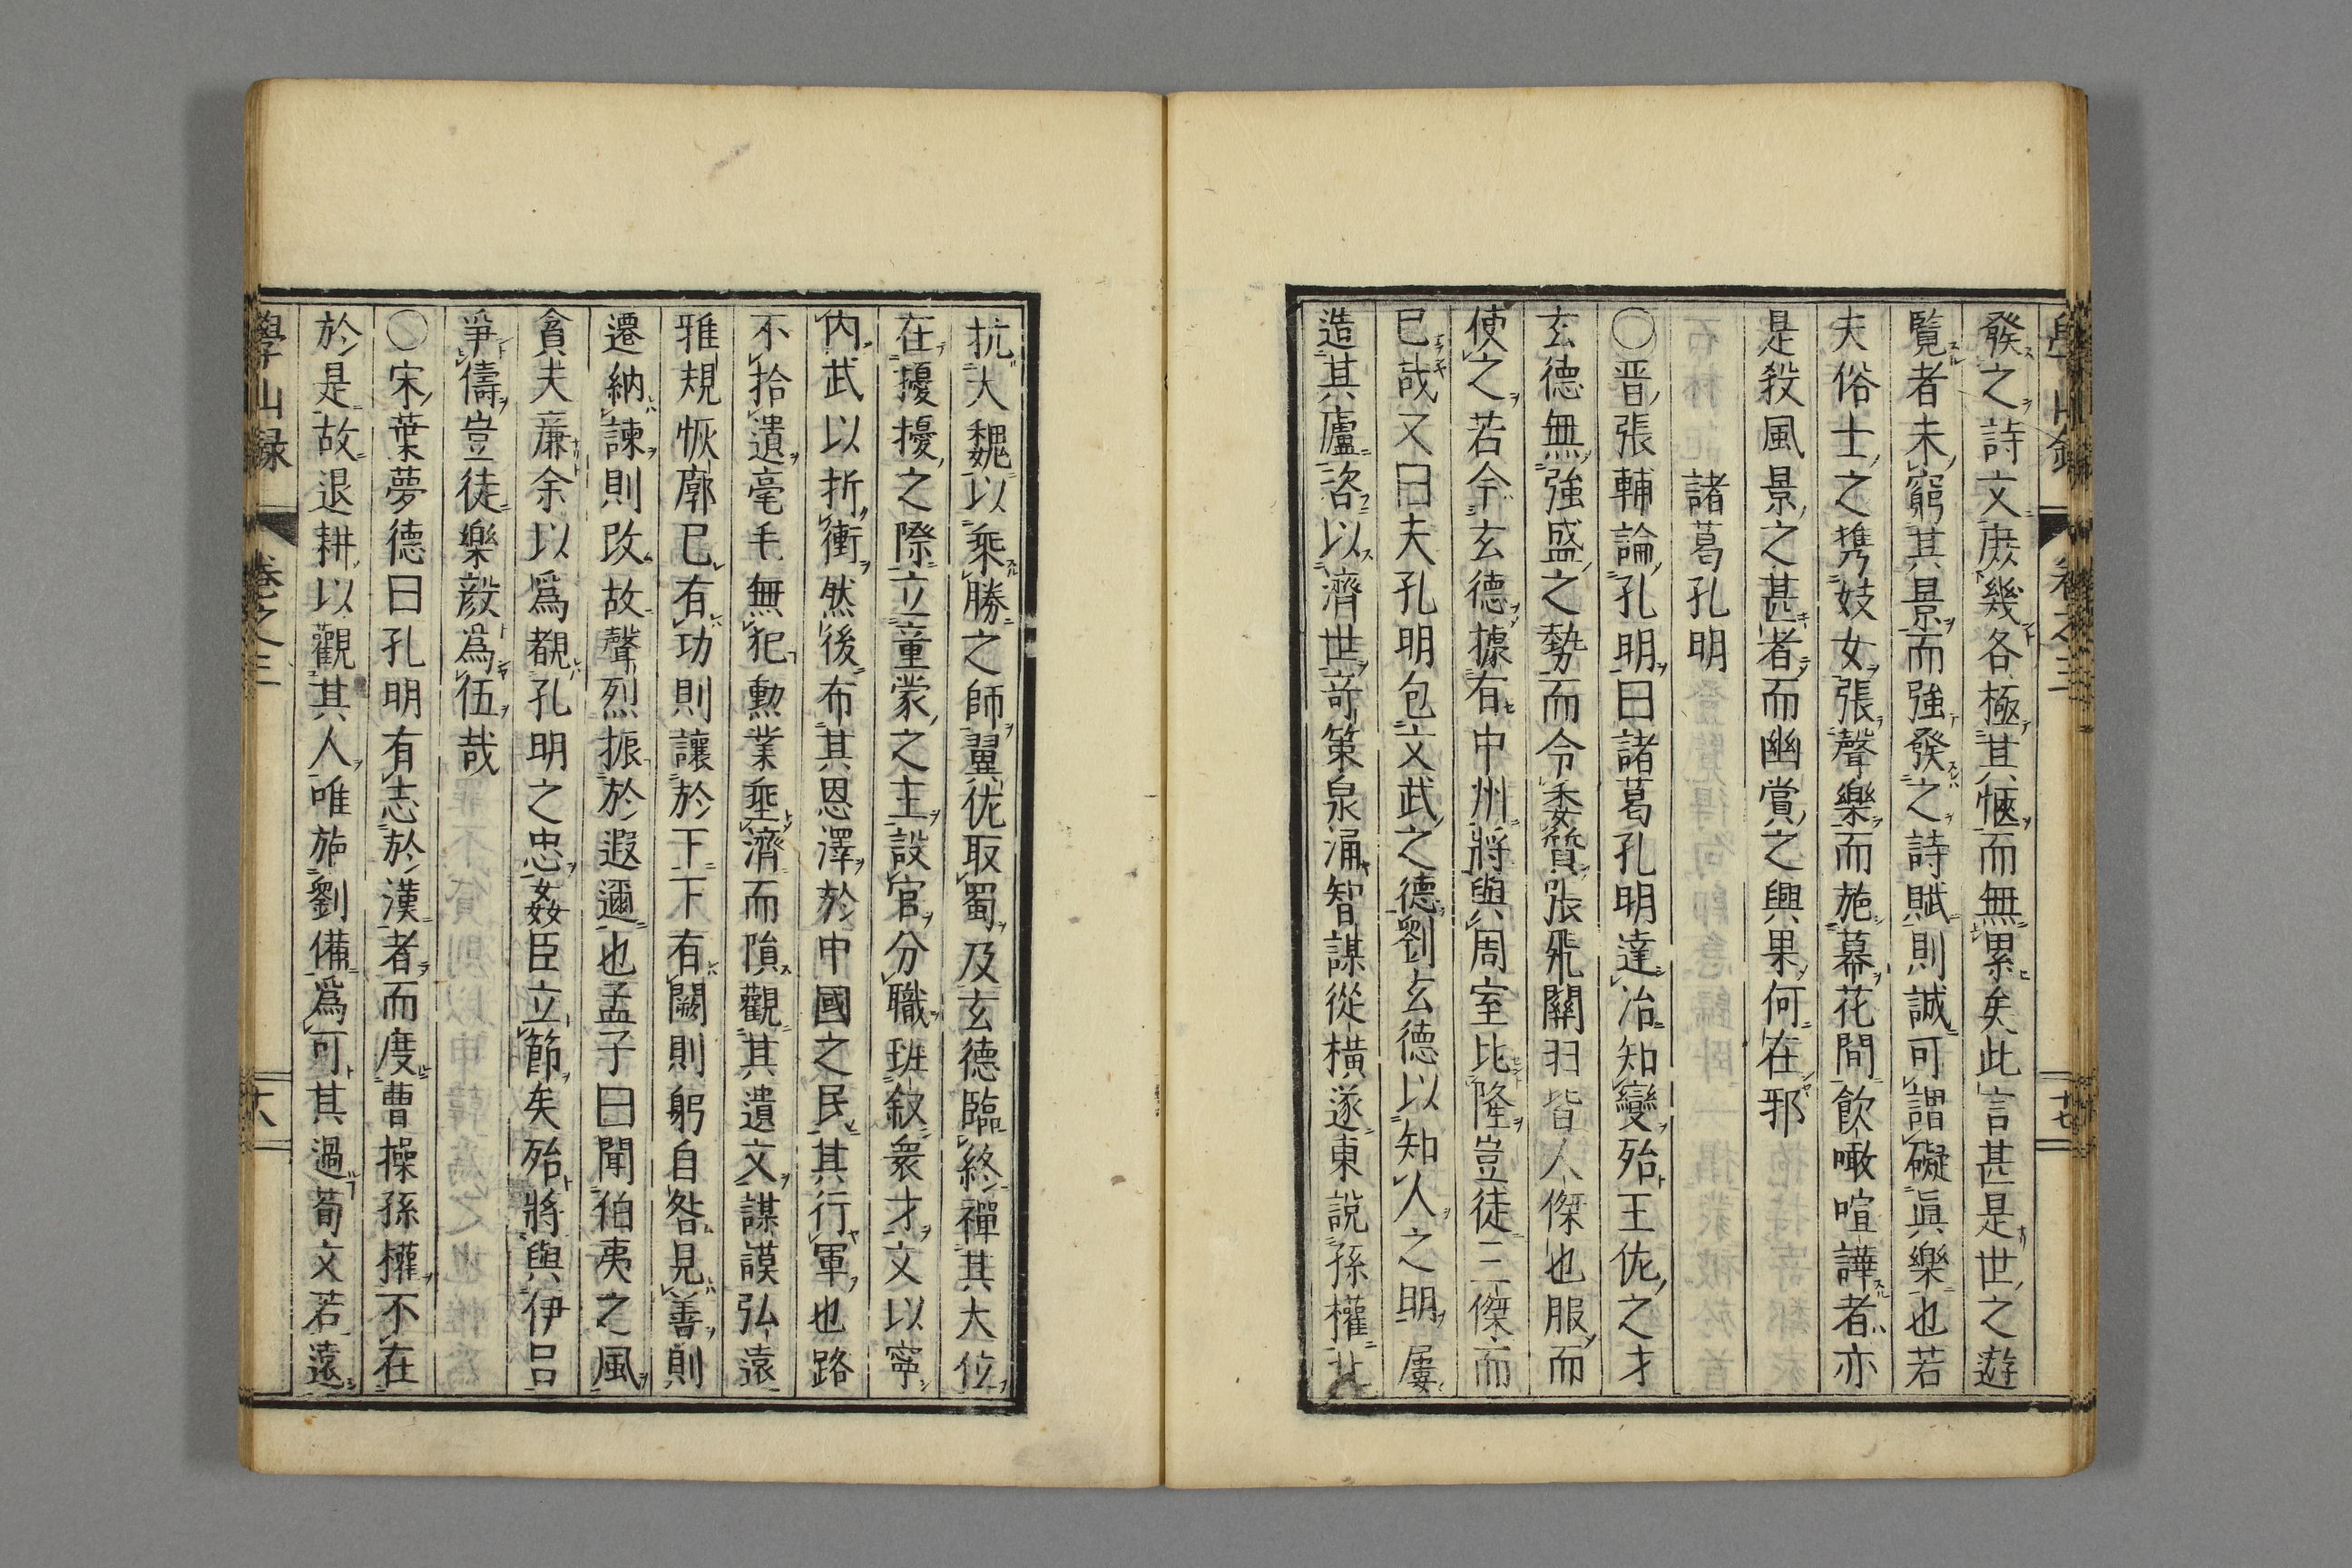 發之詩文庶幾各極其愜而無累矣此言甚是世之遊
覽者未窮其景而強發之詩賦則誠可謂礙眞樂也若
夫俗士之携妓女張聲樂而施幕花間飮噉喧譁者亦
是殺風景之甚者而幽賞之興果何在邪
諸葛孔明
○晋張輔論孔明曰諸葛孔明達治知變殆王佐之才
玄德無強盛之勢而令委質張飛關羽皆人傑也服而
使之若令玄德據有中州將與周室比隆豈徒三傑而
已哉又曰夫孔明包文武之德劉玄德以知人之明屢
造其廬咨以濟世奇策泉涌智謀從横遂東說孫權北
抗大魏以乘勝之師翼佐取蜀及玄德臨終禪其大位
在擾擾之際立童蒙之主設官分職班叙衆才文以寧
内武以折衝然後布其恩澤於中國之民其行軍也路
不拾遺毫毛無犯勲業垂濟而隕觀其遺文謀謨弘遠
雅規恢廓已有功則讓於下下有闕則躬自咎見善則
遷納諫則改故聲烈振於遐邇也孟子曰聞伯夷之風
貪夫廉余以爲覩孔明之忠姦臣立節矣殆將與伊呂
爭儔豈徒樂毅爲伍哉
○宋葉夢德曰孔明有志於漢者而度曹操孫權不在
於是故退耕以觀其人唯施劉備爲可其過荀文若遠
學山録 卷之三 十八